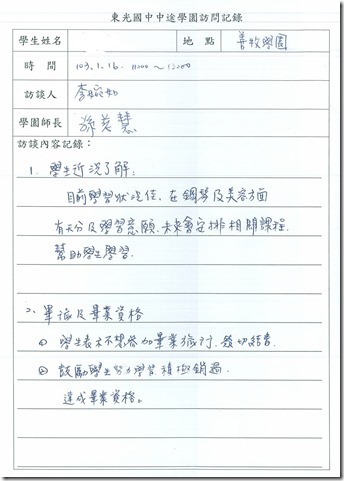 東光國中中途學園訪問記錄
學生姓名 地點 善牧學園
時間 103.1.16. 11:00~12:00
訪談人 李婉如
學園師長 孫若慧
訪談內容記錄：
1. 學生近況了解：
目前學習狀況佳、在鋼琴及美容方面
有天分及學習意願，未來會安排相關課程，
幫助學生學習.
2. 畢旅及畢業資格
① 學生表示不想參加畢業旅行，簽切結書.
② 鼓勵學生努力學習，積極銷過，
達成畢業資格。